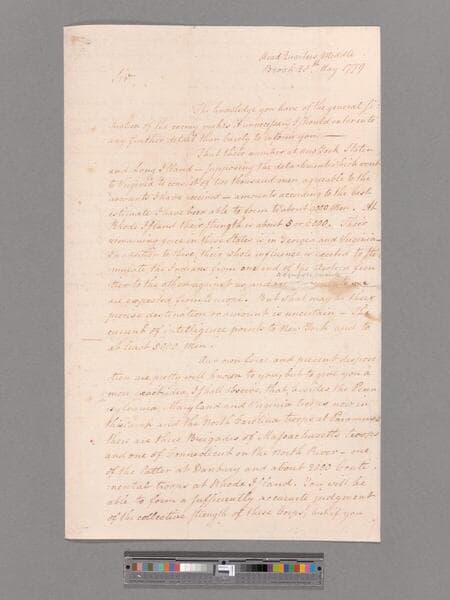 Head Quarters Middle
Brook 25th May 1779
Sir,
The knowledge you have of the general si-
tuation of the enemy makes it unnecessary I should enter into
any further detail than barely to inform you —
That their number at New York Staten
and Long Island — supposing the detachment which went
to Virginia to consist of two thousand men agreeable to the
accounts I have received — amounts according to the best
estimate I have been able to form to about 9000 Men. At
Rhode Island their strength is about 5 or 6000. Their
remaining force in these states is in Georgia and Virginia —
In addition to this, their whole influence is exerted to sti-
mulate the Indians from one end of the Western fron-
tier to the other against us, and
are expected from Europe. But what may be their
precise destination or amount is uncertain — The
current of intelligence points to New York and to
at least 5000 Men.
Our own force and present disposi-
tion are pretty well known to you, but to give you a
more exact idea, I shall observe, that, besides the Penn-
sylvania, Maryland and Virginia troops now in
this Camp and the North Carolina troops at Paramus
there are three Brigades of Massachusetts troops
and one of Connecticut on the North River — one
of the latter at Danbury and about 2000 Conti-
nental troops at Rhode Island. You will be
able to form a sufficiently accurate judgment
of the collective strength of these Corps, but if you